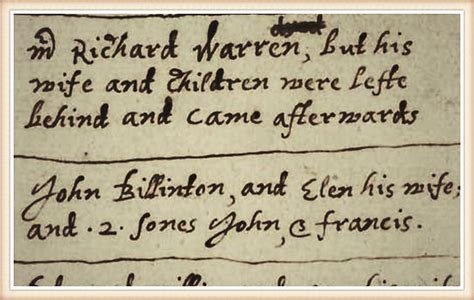 mr Richard Warren, but his
wife and children were lefte
behind and came afterwards
John Billinton, and Elen his wife;
and .2. sones John, & francis.